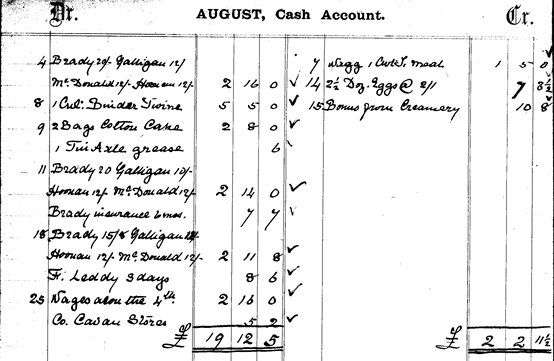 Dr. AUGUST, Cash Account. Cr.
4 Brady 20/- Galligan 12/
McDonald 12/- Hoonan 12/ 2 16 0
8 1 Cwt. Binder Twine 5 5 0
9 2 Bags Cotton Cake 2 8 0
1 Tin Axle grease 6
11 Brady 20 Galligan 10/-
Hoonan 12/- McDonald 12/- 2 14 0
Brady insurance 6 mos. 7 7
18 Brady 15/8 Galligan
Hoonan 12/- McDonald 12/- 2 11 8
F. Leddy 3 days 8 6
25 Wages as on the 4th 2 16 0
Co. Cavan Stores 5 2
£ 19 12 5
7 1 Cwt. Meal 1 5 0
14 2½ Doz. Eggs @ 2/11 7 3½
15 Bonus from Creamery 10 8
£ 2 2 11½